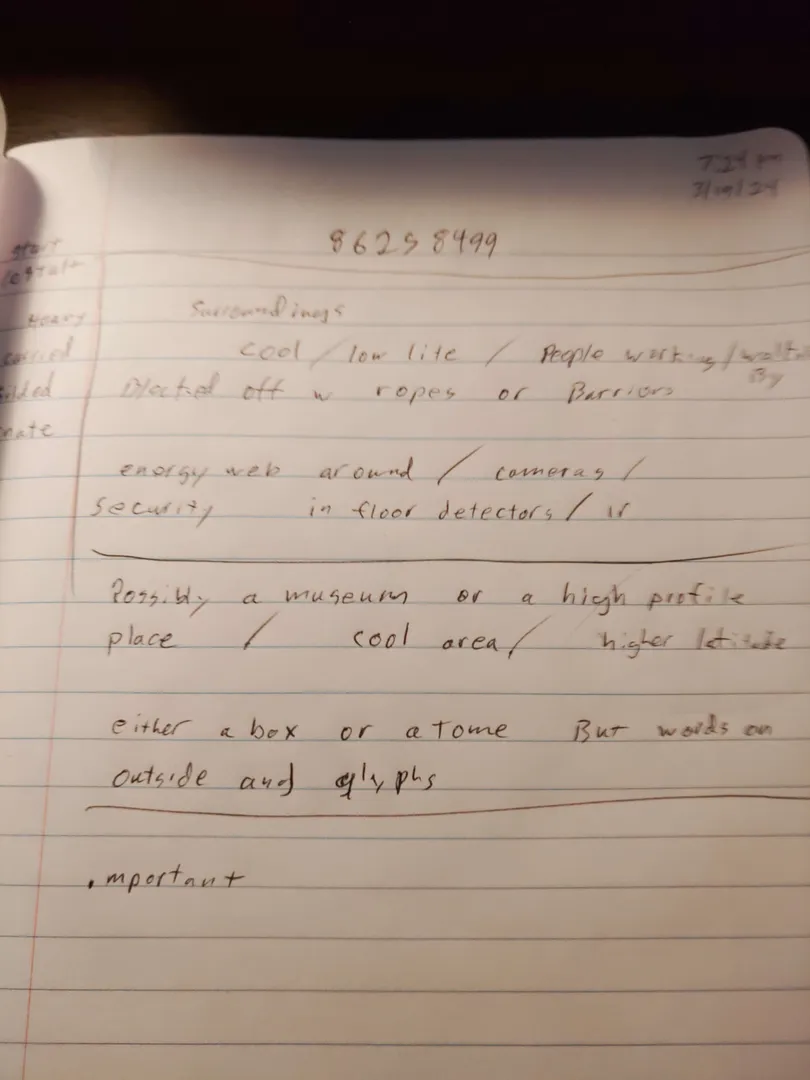 7:24 pm
3/19/24
86258499
start
Surroundings
Heavy
cool / low lite / People working / walk
carried
By
Blocked off w ropes or Barriors
nate
energy web around / cameras /
security in floor detectors / ir
Possibly a museum or a high profile
place / cool area / higher latitude
either a box or a Tome But words on
outside and glyphs
.mportant